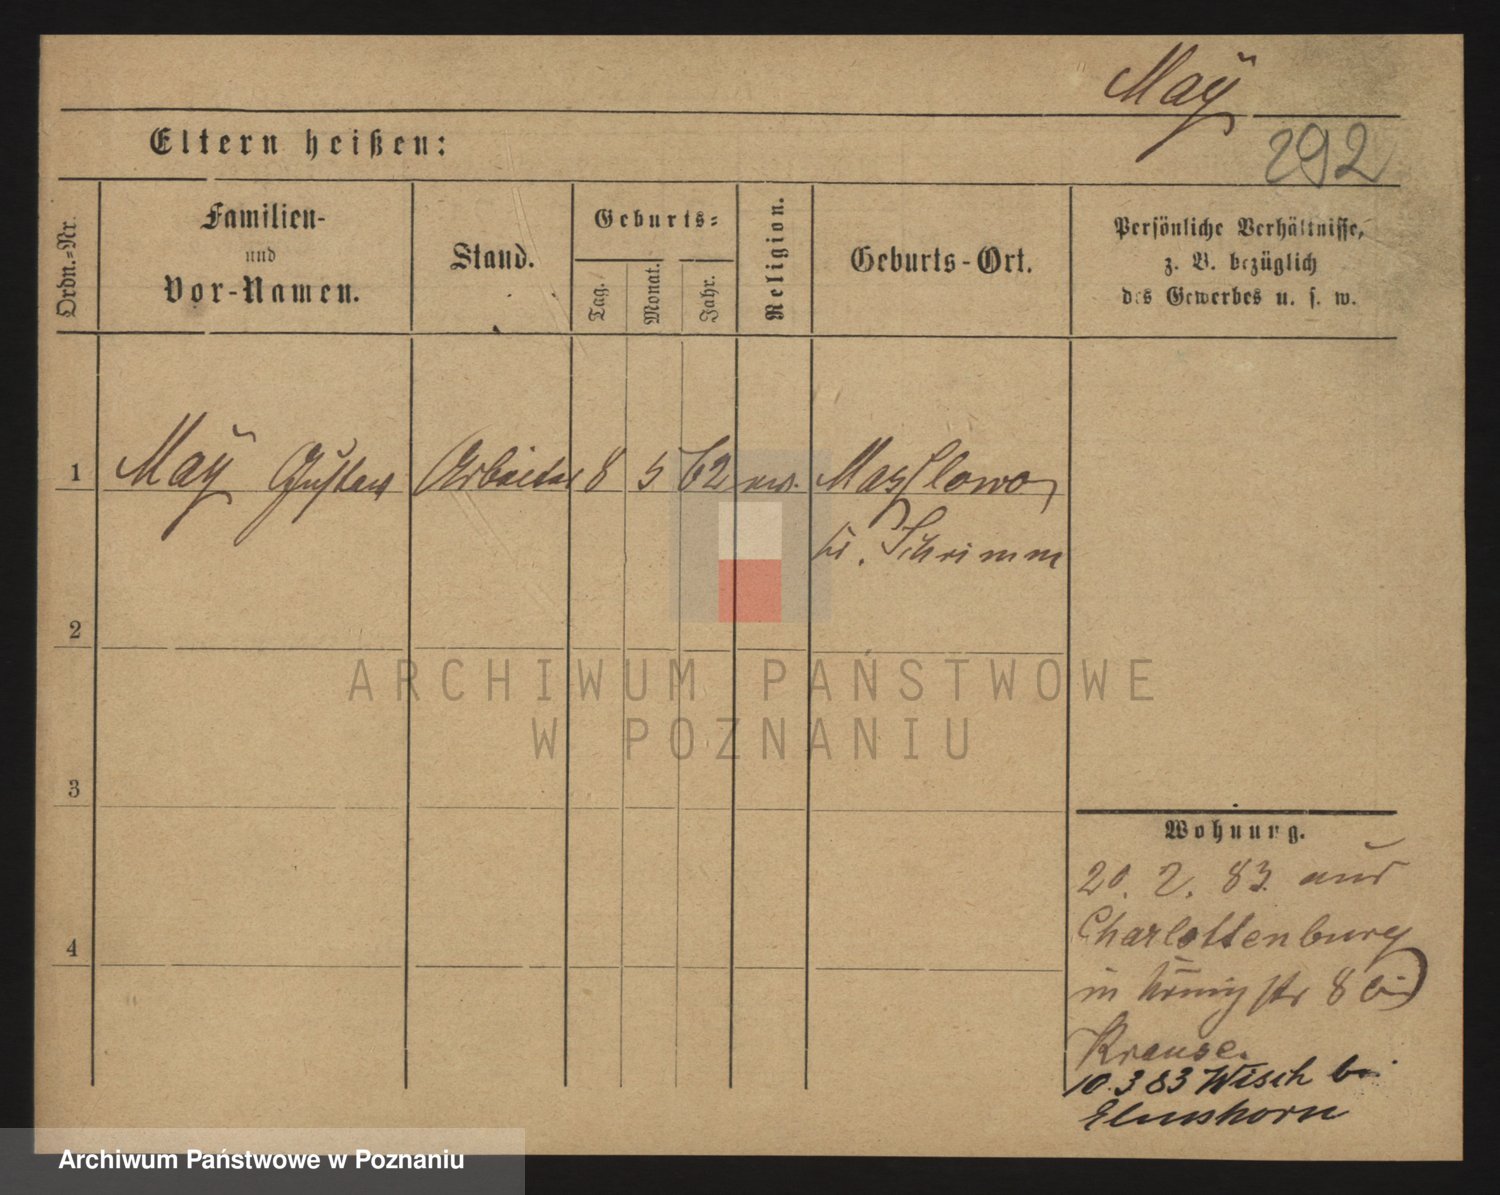 Maÿ
292
Eltern heißen:
Ordn.-Nr.
Familien-
und
Vor-Namen.
Stand.
Geburts-
Tag.
Monat.
Jahr.
Religion.
Geburts-Ort.
Persönliche Verhältnisse,
z. B. bezüglich
des Gewerbes u. s. w.
1 Maÿ Gustav Arbeiter 8 5 62 ev. Maslowo
Kr. Schrimm
2
3
4
Wohnung.
20. 2. 83. aus
Charlottenburg
in Königstr 8 bei
Krause.
10.3 83 Wisch bei
Elmshorn
ARCHIWUM PAŃSTWOWE
W POZNANIU
Archiwum Państwowe w Poznaniu